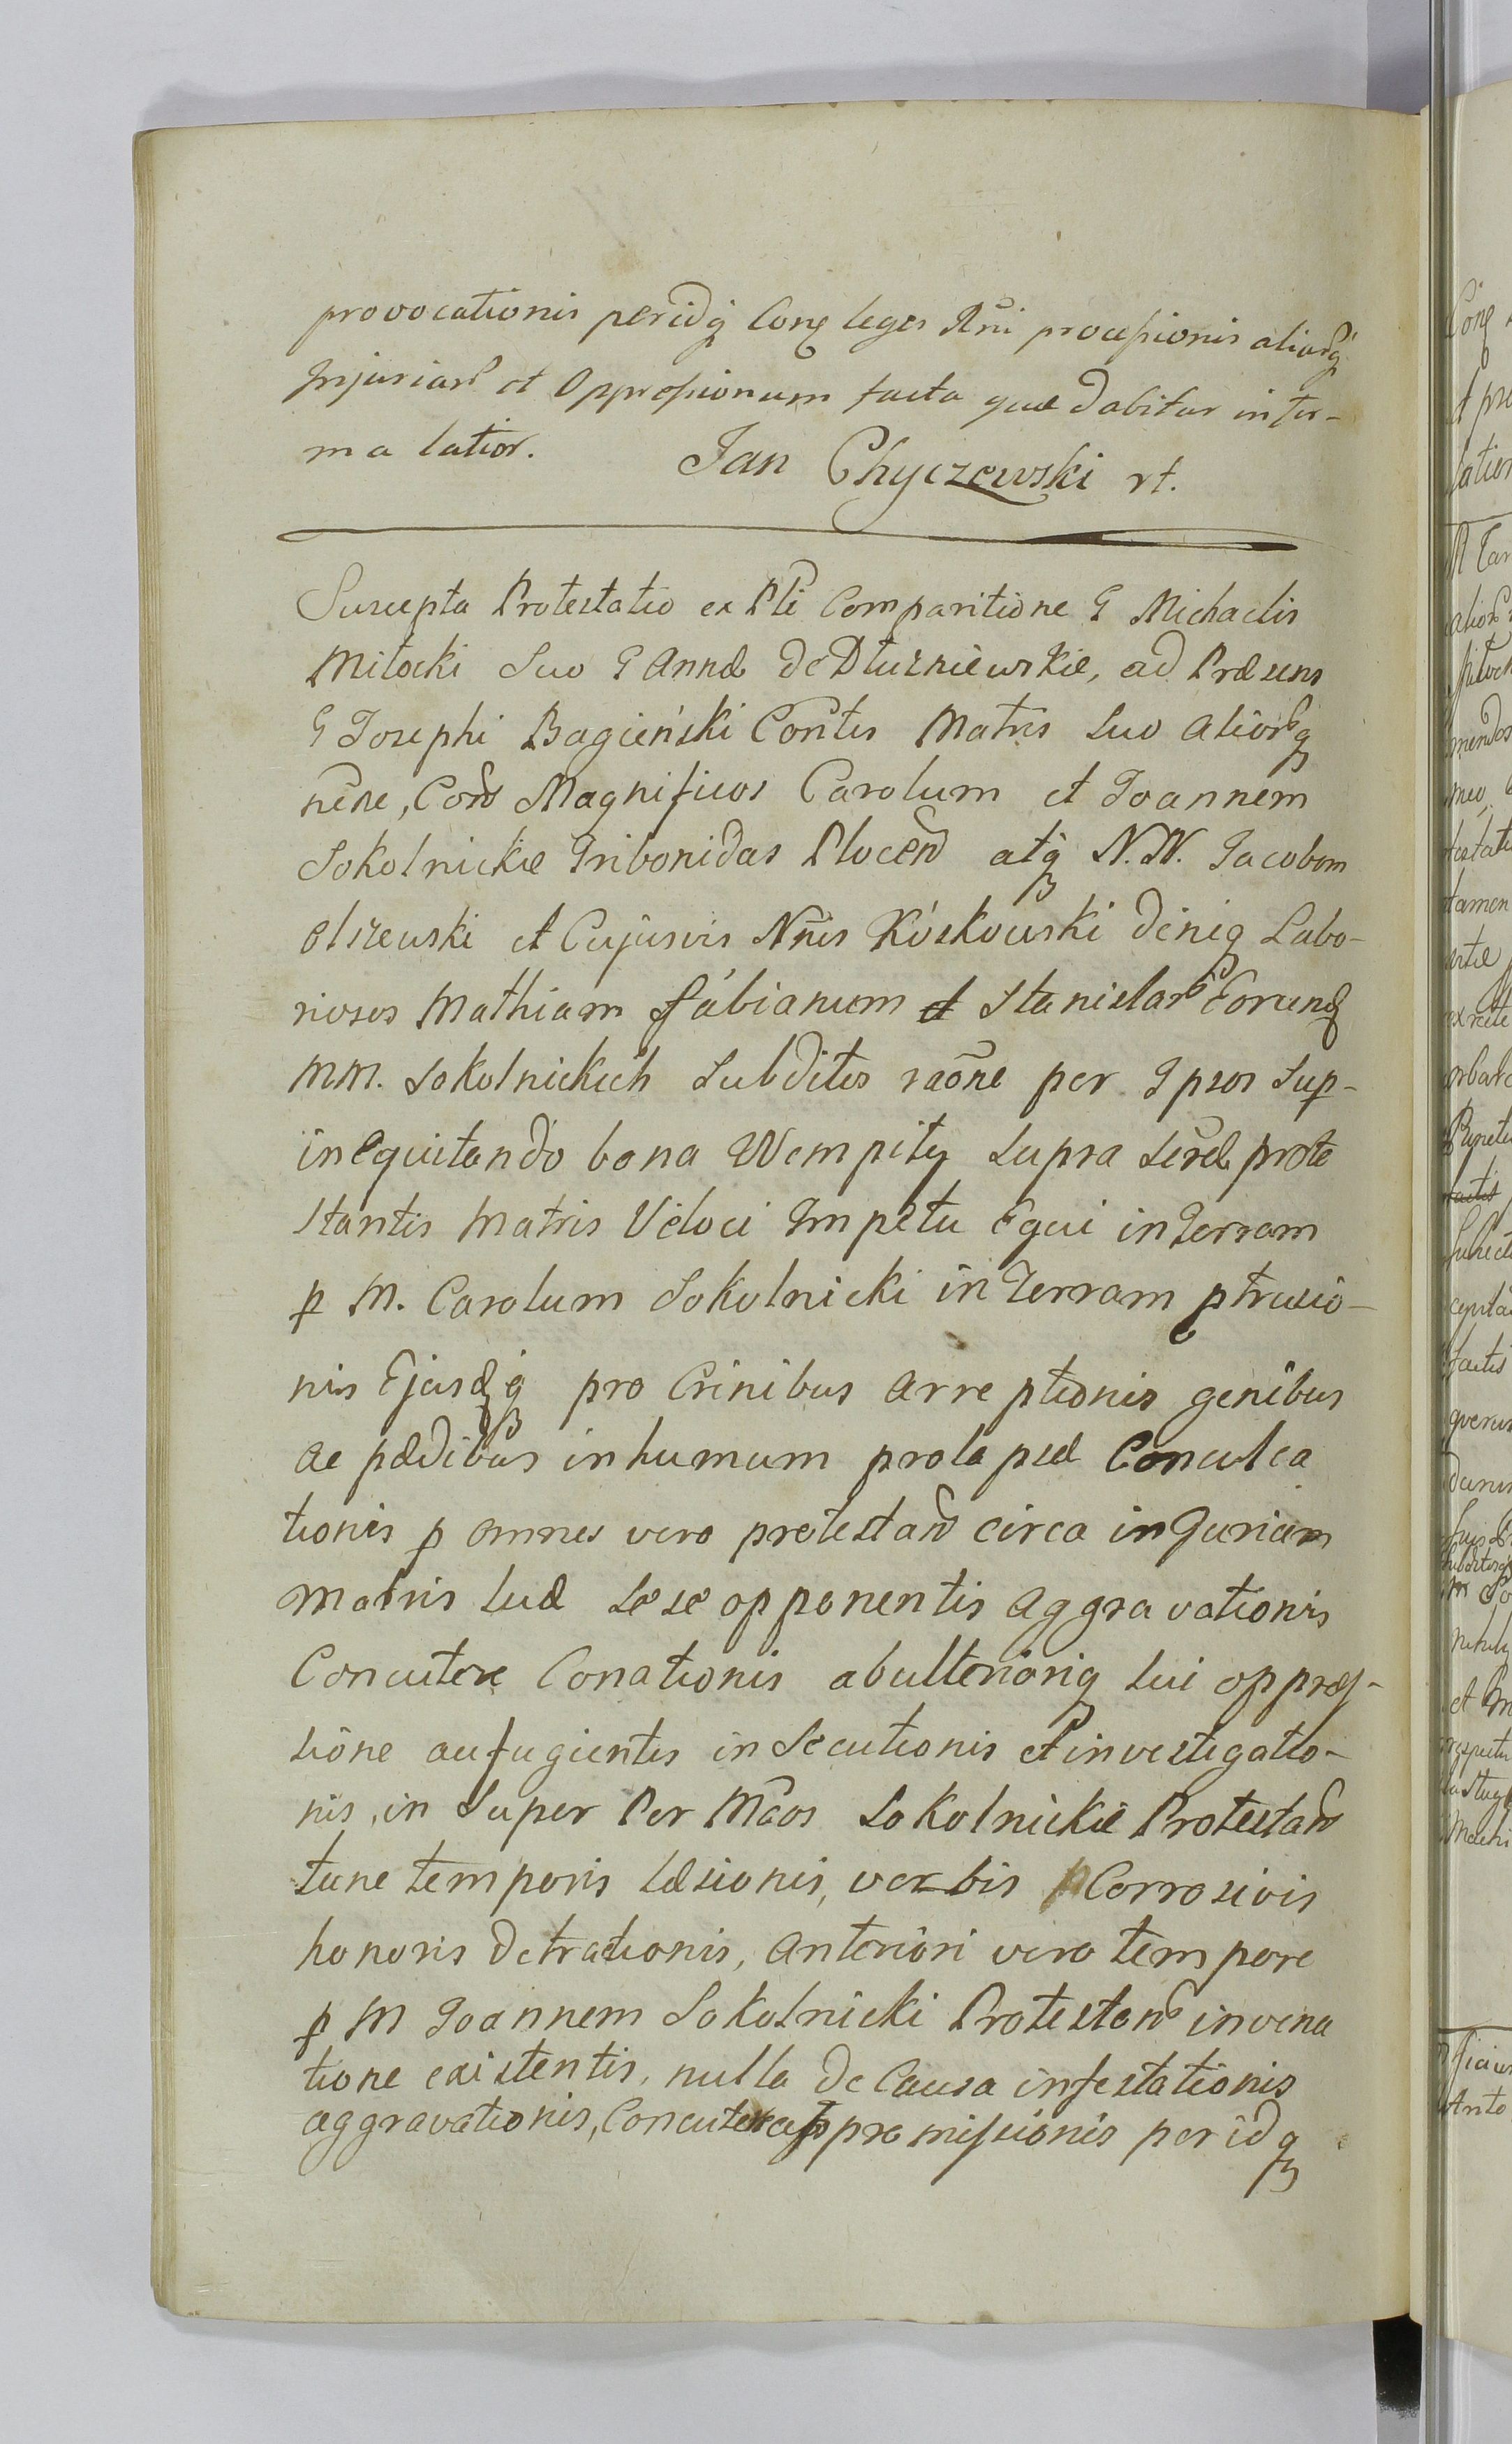 provocationis peridq̃ Conq leges Rñi processionis aliarq̃
Injuriar̃ et Oppressionum facta quæ dabitur in for-
ma latior.
Jan Chyczewski rt.
Suscepta Protestatio ex Pli Comparitione G Michaelis
Miłocki Suo G Annæ de Dłuzniewskie, ad Præsens
G Josephi Bagieński Contis Matris suo aliorq̃
nẽne, Cora Magnificos Carolum et Joannem
Sokolnickie Tribonidas Plocen atq̃ N.N. Jacobom
Olszewski et Cujusvis Nñis Kóskowski deniq Labo-
riosos Mathiam Fábianum et Stanislar Eorundq
MM. Sokolnickich Subditos raõne per Ipsos Sup-
inequitando bona Wempiły supra scrël prote
stantis Matris Veloci Impetu Equi in Terram
p M. Carolum Sokolnicki in Terram ptrusio-
nis Ejusdq̃ pro Crinibus arreptionis genibus
ac pædibus in humum prolapsæ Conculca
tionis p omnes vero protestan circa in Juriam
Matris suæ sese opponentis aggravationis
Concutere Conationis ab ulterioriq sui oppres-
sione aufugientis in Secutionis et investigatio-
nis, in super Per Mcos Sokolnickie Protestan
tunc temporis læsionis, verbis Corrosivis
honoris detractionis, anteriori vero tempore
p M Joannem Sokolnicki Protestan in vena
tione existentis, nulla de Causa infestationis
aggravationis, Concutere promissionis per idq̃